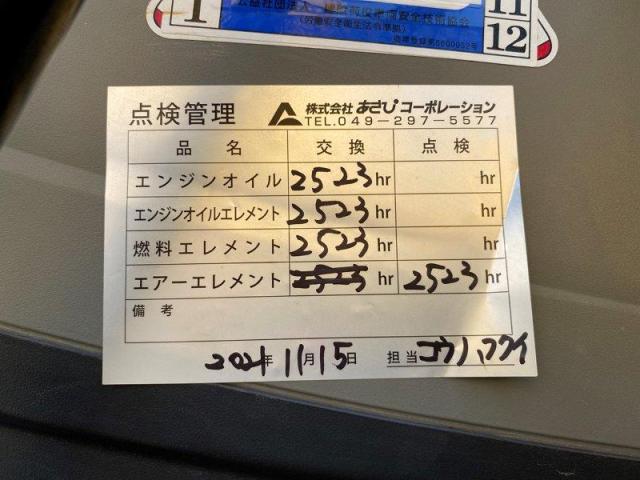 1
11
12
(労働安全衛生法の準拠)
点検管理 株式会社 あさひコーポレーション
TEL.049-297-5577
品名 交換 点検
エンジンオイル 2523hr hr
エンジンオイルエレメント 2523hr hr
燃料エレメント 2523hr hr
エアーエレメント 2523hr 2523hr
備考
2021年 11月15日 担当